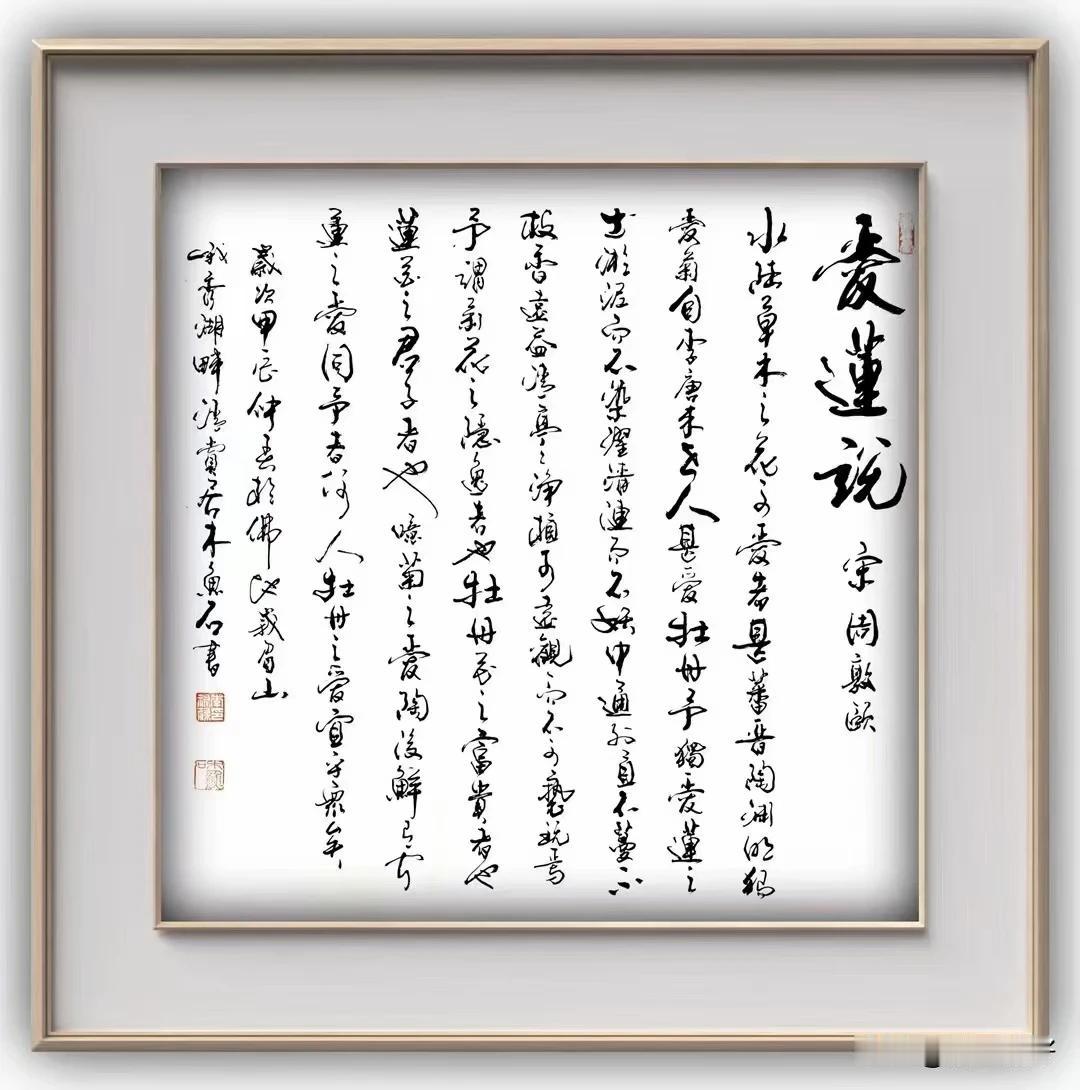 愛蓮說 宋 周敦頤
水陸草木之花可愛者甚蕃晉陶淵明獨
愛菊自李唐來世人甚愛牡丹予獨愛蓮之
出淤泥而不染濯清漣而不妖中通外直不蔓不
枝香遠益清亭〻淨植可遠觀而不可褻玩焉
予謂菊花之隱逸者也牡丹花之富貴者也
蓮花之君子者也噫菊之愛陶後鮮有聞
蓮之愛同予者何人牡丹之愛宜乎眾矣
歲次甲辰仲春於佛地峩眉山
峨秀湖畔清賞居木魚石書